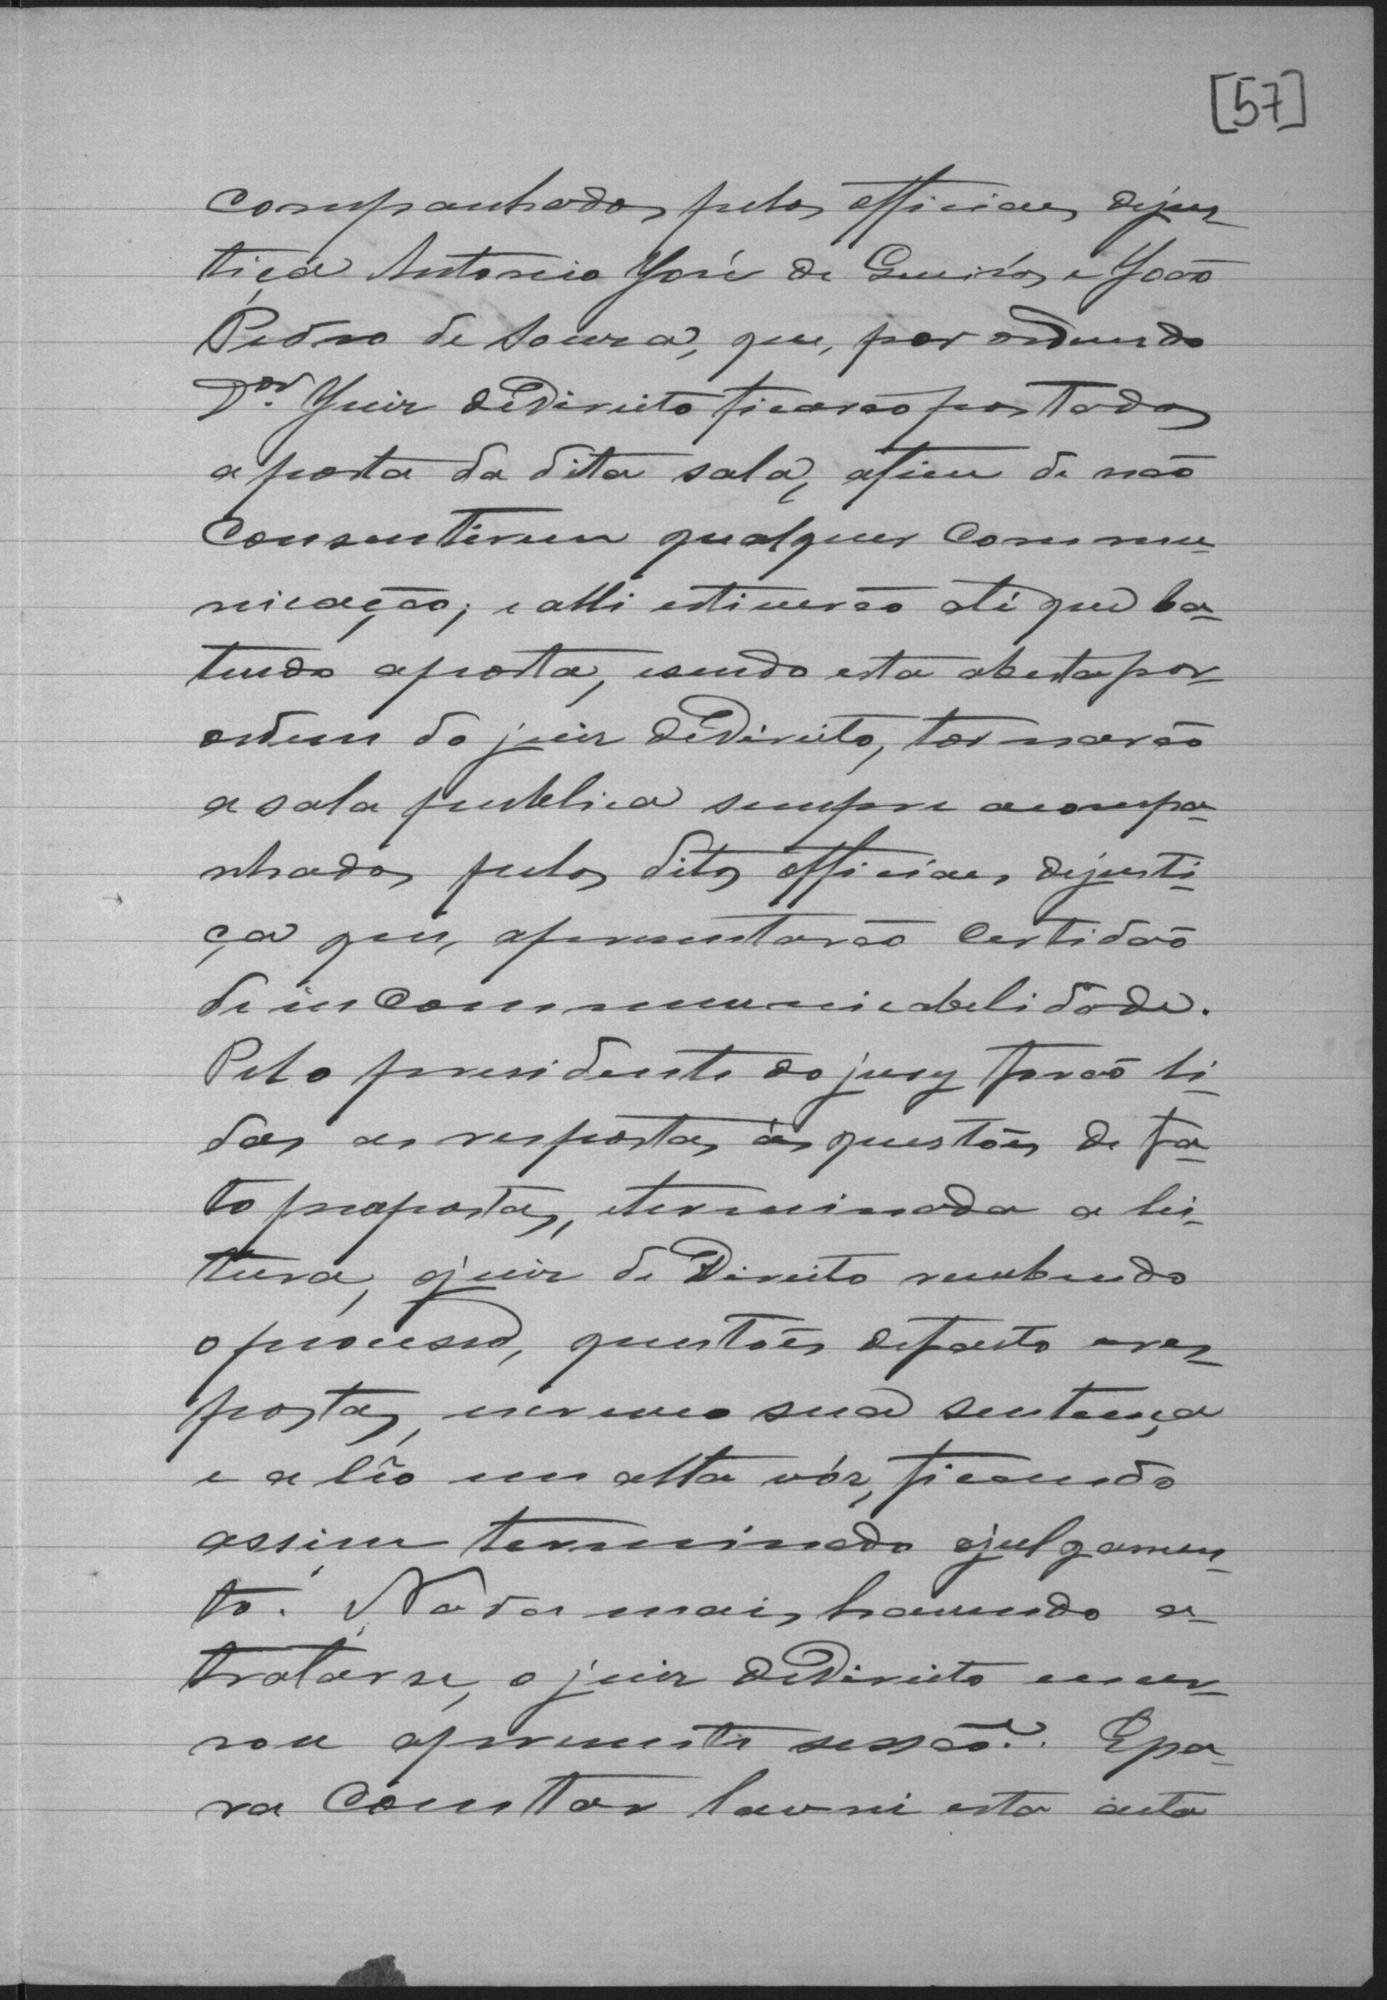 [57]
companhados pelos officiaes dejus-
tiça Antonio José de Queirós e João
Pedro de Souza, que, por ordem do
Dor. Juiz deDireito ficarão postados
a porta da dita sala, afim de não
consentirem qualquer commu-
nicação; e alli estiverão até que ba-
tendo aporta, esendo esta aberta por-
ordem do juiz deDireito, tornarão
a sala publica sempre acompa-
nhados pelos ditos officiaes dejusti-
ça que, apresentarão certidão
de incommunicabelidade.
Pelo presidente do jury forão li-
das as respostas ás questões de fa-
to propostas, eterminada a lei-
tura, ojuiz de Direito recebendo
o processo, questões defacto eres-
postas, escreveo sua sentença
e a lêo em alta vóz, ficando
assim terminado ojulgamen-
to. Nada mais havendo a-
tratarse, o juiz deDireito encer-
rou apresente sessão. Epa-
ra constar lavrei esta acta